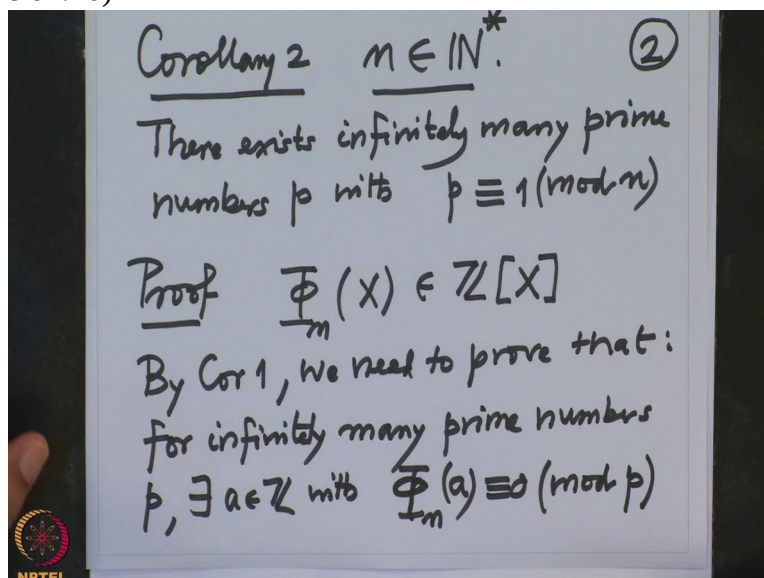 Corollary 2 n ∈ ℕ*. ②
There exists infinitely many prime
numbers p with p ≡ 1 (mod n)
Proof Φₙ(X) ∈ ℤ[X]
By Cor 1, we need to prove that:
for infinitely many prime numbers
p, ∃ a ∈ ℤ with Φₙ(a) ≡ 0 (mod p)
NPTEL